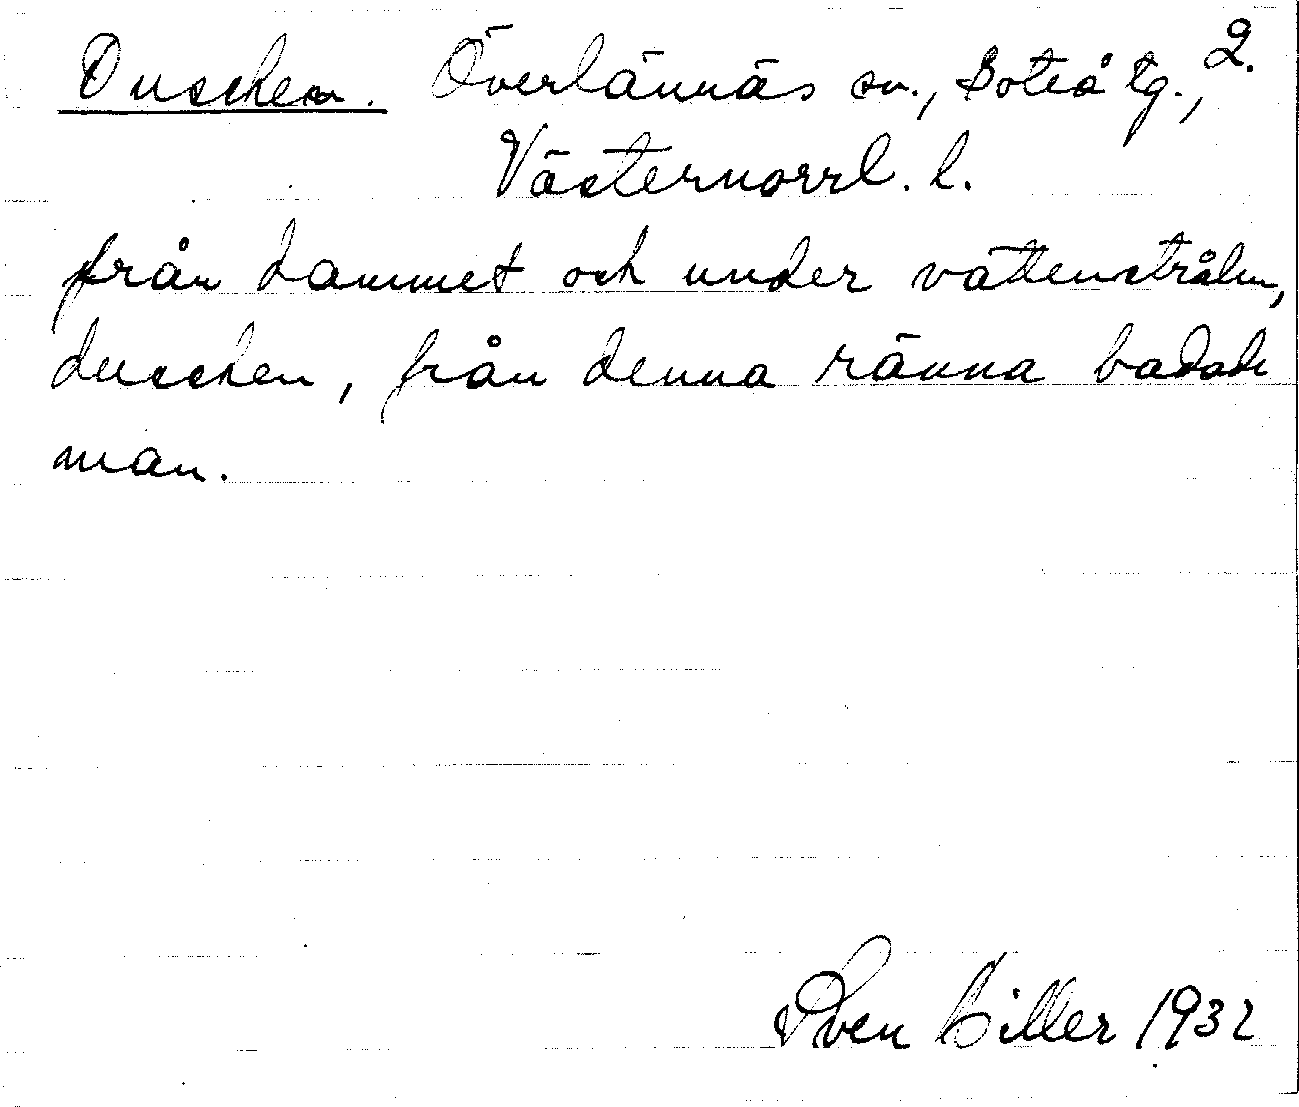 Duschen. Överlännäs sn., Boteå tg., 2.
Västernorrl. l.
från dammet och under vattenstrålen,
duschen, från denna ränna badade
man.
Sven Ciller 1932